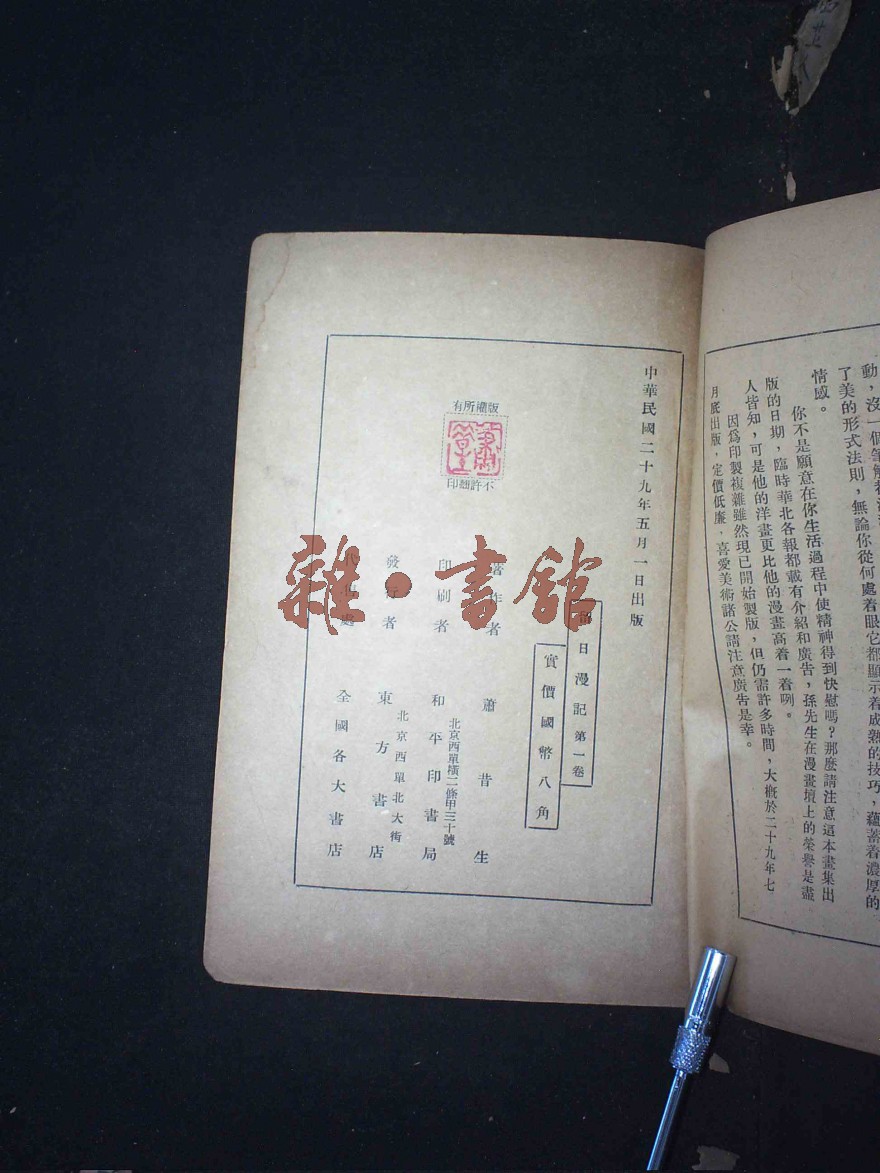 動，沒一個筆觸
了美的形式法則，無論你從何處着眼它都顯示着成熟的技巧，蘊蓄着濃厚的
情感。
你不是願意在你生活過程中使精神得到快慰嗎？那麽請注意這本畫集出
版的日期，臨時華北各報都載有介紹和廣告，孫先生在漫畫壇上的榮譽是盡
人皆知，可是他的洋畫更比他的漫畫高着一着咧。
因爲印製複雜雖然現已開始製版，但仍需許多時間，大概於二十九年七
月底出版，定價低廉，喜愛美術諸公請注意廣告是幸。
中華民國二十九年五月一日出版
日漫記 第一卷
實價國幣八角
著作者 蕭昔生
印刷者 和平印書局
北京西單橫二條甲三十號
發行者 東方書店
北京西單北大街
代售處 全國各大書店
版權所有
不許翻印
雜·書館